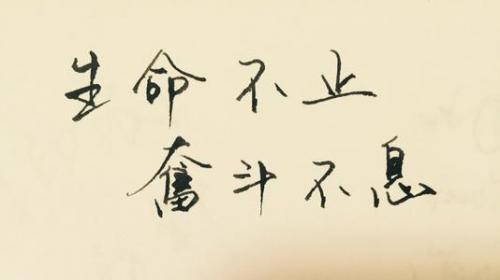 生命不止
奮斗不息